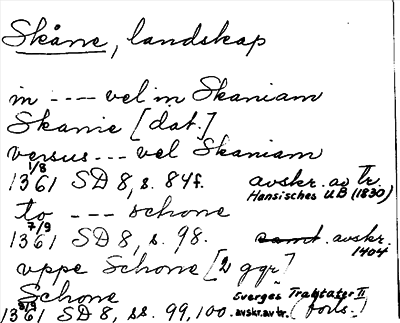 Skåne, landskap
in ---- vel in Skaniam
Skanie [dat.]
versus --- vel Skaniam
1/8
1361 SD 8, s. 84f. avskr. av Tr.
Hansisches UB (1830)
to --- schone
7/9
1361 SD 8, s. 98. samt. avskr.
1404
uppe Schone [2 ggr]
Schone Sverges Traktater II
9/9
1361 SD 8, ss. 99, 100. avskr. av tr. (forts.)